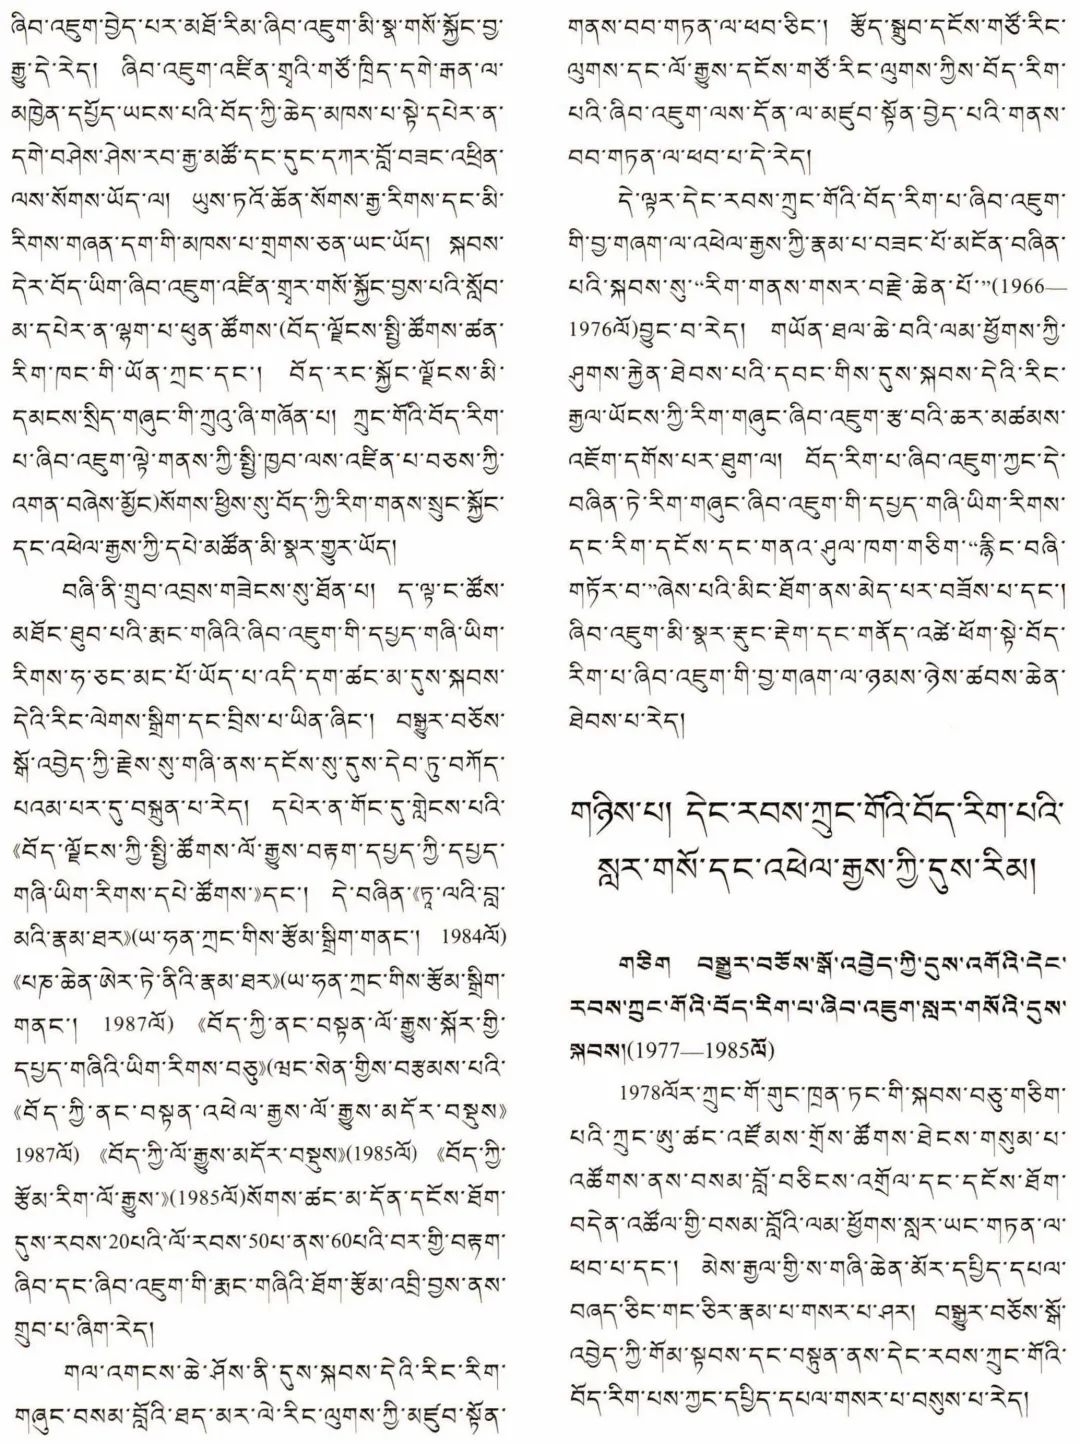 ཞིབ་འཇུག་བྱེད་པར་མཐོ་རིམ་ཞིབ་འཇུག་མི་སྣ་གསོ་སྐྱོང་བྱ་
རྒྱུ་དེ་རེད། ཞིབ་འཇུག་འཛིན་གྲྭའི་གཙོ་ཁྲིད་དགེ་རྒན་ལ་
མཁྱེན་དཔྱོད་ཡངས་པའི་བོད་ཀྱི་ཆེད་མཁས་པ་སྟེ་དཔེར་ན་
དགེ་བཤེས་ཤེས་རབ་རྒྱ་མཚོ་དང་དུང་དཀར་བློ་བཟང་འཕྲིན་
ལས་སོགས་ཡོད་ལ། ཡུས་ཏའོ་ཆོན་སོགས་རྒྱ་རིགས་དང་མི་
རིགས་གཞན་དག་གི་མཁས་པ་གྲགས་ཅན་ཡང་ཡོད། སྐབས་
དེར་བོད་ཡིག་ཞིབ་འཇུག་འཛིན་གྲྭར་གསོ་སྐྱོང་བྱས་པའི་སློབ་
མ་དཔེར་ན་ལྷག་པ་ཕུན་ཚོགས་(བོད་ལྗོངས་སྤྱི་ཚོགས་ཚན་
རིག་ཁང་གི་ཡོན་ཀྲང་དང་། བོད་རང་སྐྱོང་ལྗོངས་མི་
དམངས་སྲིད་གཞུང་གི་ཀྲུའུ་ཞི་གཞོན་པ། ཀྲུང་གོའི་བོད་རིག་
པ་ཞིབ་འཇུག་ལྟེ་གནས་ཀྱི་སྤྱི་ཁྱབ་ལས་འཛིན་པ་བཅས་ཀྱི་
འགན་བཞེས་མྱོང)སོགས་ཕྱིས་སུ་བོད་ཀྱི་རིག་གནས་སྲུང་སྐྱོང་
དང་འཕེལ་རྒྱས་ཀྱི་དཔེ་མཚོན་མི་སྣར་གྱུར་ཡོད།
བཞི་ནི་གྲུབ་འབྲས་གཟེངས་སུ་ཐོན་པ། ད་ལྟ་ང་ཚོས་
མཐོང་ཐུབ་པའི་རྨང་གཞིའི་ཞིབ་འཇུག་གི་དཔྱད་གཞི་ཡིག་
རིགས་ཧ་ཅང་མང་པོ་ཡོད་པ་འདི་དག་ཚང་མ་དུས་སྐབས་
དེའི་རིང་ལེགས་སྒྲིག་དང་བྲིས་པ་ཡིན་ཞིང་། བསྒྱུར་བཅོས་
སྒོ་འབྱེད་ཀྱི་རྗེས་སུ་གཞི་ནས་དངོས་སུ་དུས་དེབ་ཏུ་བཀོད་
པའམ་པར་དུ་བསྐྲུན་པ་རེད། དཔེར་ན་གོང་དུ་གླེངས་པའི་
《བོད་ལྗོངས་ཀྱི་སྤྱི་ཚོགས་ལོ་རྒྱུས་བརྟག་དཔྱད་ཀྱི་དཔྱད་
གཞི་ཡིག་རིགས་དཔེ་ཚོགས་》དང་། དེ་བཞིན་《ཏཱ་ལའི་བླ་
མའི་རྣམ་ཐར》(ཡ་ཧན་ཀྲང་གིས་རྩོམ་སྒྲིག་གནང་། 1984ལོ)
《པཎ་ཆེན་ཨེར་ཏེ་ནིའི་རྣམ་ཐར》(ཡ་ཧན་ཀྲང་གིས་རྩོམ་སྒྲིག་
གནང་། 1987ལོ) 《བོད་ཀྱི་ནང་བསྟན་ལོ་རྒྱུས་སྐོར་གྱི་
དཔྱད་གཞིའི་ཡིག་རིགས་བཅུ》(ཝང་སེན་གྱིས་བརྩམས་པའི་
《བོད་ཀྱི་ནང་བསྟན་འཕེལ་རྒྱས་ལོ་རྒྱུས་མདོར་བསྡུས》
1987ལོ) 《བོད་ཀྱི་ལོ་རྒྱུས་མདོར་བསྡུས》(1985ལོ) 《བོད་ཀྱི་
རྩོམ་རིག་ལོ་རྒྱུས་》(1985ལོ)སོགས་ཚང་མ་དོན་དངོས་ཐོག་
དུས་རབས་20པའི་ལོ་རབས་50པ་ནས་60པའི་བར་གྱི་བརྟག་
ཞིབ་དང་ཞིབ་འཇུག་གི་རྨང་གཞིའི་ཐོག་རྩོམ་འབྲི་བྱས་ནས་
གྲུབ་པ་ཞིག་རེད།
གལ་འགངས་ཆེ་ཤོས་ནི་དུས་སྐབས་དེའི་རིང་རིག་
གཞུང་བསམ་བློའི་ཐད་མར་ལེ་རིང་ལུགས་ཀྱི་མཛུབ་སྟོན་
གནས་བབ་གཏན་ལ་ཕབ་ཅིང་། རྩོད་སྒྲུབ་དངོས་གཙོ་རིང་
ལུགས་དང་ལོ་རྒྱུས་དངོས་གཙོ་རིང་ལུགས་ཀྱིས་བོད་རིག་
པའི་ཞིབ་འཇུག་ལས་དོན་ལ་མཛུབ་སྟོན་བྱེད་པའི་གནས་
བབ་གཏན་ལ་ཕབ་པ་དེ་རེད།
དེ་ལྟར་དེང་རབས་ཀྲུང་གོའི་བོད་རིག་པ་ཞིབ་འཇུག་
གི་བྱ་གཞག་ལ་འཕེལ་རྒྱས་ཀྱི་རྣམ་པ་བཟང་པོ་མངོན་བཞིན་
པའི་སྐབས་སུ་“རིག་གནས་གསར་བརྗེ་ཆེན་པོ་”(1966—
1976ལོ)བྱུང་བ་རེད། གཡོན་ཐལ་ཆེ་བའི་ལམ་ཕྱོགས་ཀྱི་
ཤུགས་རྐྱེན་ཐེབས་པའི་དབང་གིས་དུས་སྐབས་དེའི་རིང་
རྒྱལ་ཡོངས་ཀྱི་རིག་གཞུང་ཞིབ་འཇུག་རྩ་བའི་ཆར་མཚམས་
འཇོག་དགོས་པར་ཐུག་ལ། བོད་རིག་པ་ཞིབ་འཇུག་ཀྱང་དེ་
བཞིན་ཏེ་རིག་གཞུང་ཞིབ་འཇུག་གི་དཔྱད་གཞི་ཡིག་རིགས་
དང་རིག་དངོས་དང་གནའ་ཤུལ་ཁག་གཅིག་“རྙིང་བཞི་
གཏོར་བ་”ཞེས་པའི་མིང་ཐོག་ནས་མེད་པར་བཟོས་པ་དང་།
ཞིབ་འཇུག་མི་སྣར་རྡུང་རྡེག་དང་གནོད་འཚེ་ཕོག་སྟེ་བོད་
རིག་པ་ཞིབ་འཇུག་གི་བྱ་གཞག་ལ་ཉམས་ཉེས་ཚབས་ཆེན་
ཐེབས་པ་རེད།
གཉིས་པ། དེང་རབས་ཀྲུང་གོའི་བོད་རིག་པའི་
སླར་གསོ་དང་འཕེལ་རྒྱས་ཀྱི་དུས་རིམ།
གཅིག བསྒྱུར་བཅོས་སྒོ་འབྱེད་ཀྱི་དུས་འགོའི་དེང་
རབས་ཀྲུང་གོའི་བོད་རིག་པ་ཞིབ་འཇུག་སླར་གསོའི་དུས་
སྐབས།(1977—1985ལོ)
1978ལོར་ཀྲུང་གོ་གུང་ཁྲན་ཏང་གི་སྐབས་བཅུ་གཅིག་
པའི་ཀྲུང་ཨུ་ཚང་འཛོམས་གྲོས་ཚོགས་ཐེངས་གསུམ་པ་
འཚོགས་ནས་བསམ་བློ་བཅིངས་འགྲོལ་དང་དངོས་ཐོག་
བདེན་འཚོལ་གྱི་བསམ་བློའི་ལམ་ཕྱོགས་སླར་ཡང་གཏན་ལ་
ཕབ་པ་དང་། མེས་རྒྱལ་གྱི་ས་གཞི་ཆེན་མོར་དཔྱིད་དཔལ་
བཞད་ཅིང་གང་ཅིར་རྣམ་པ་གསར་པ་ཤར། བསྒྱུར་བཅོས་སྒོ་
འབྱེད་ཀྱི་གོམ་སྟབས་དང་བསྟུན་ནས་དེང་རབས་ཀྲུང་གོའི་
བོད་རིག་པས་ཀྱང་དཔྱིད་དཔལ་གསར་པ་བསུས་པ་རེད།